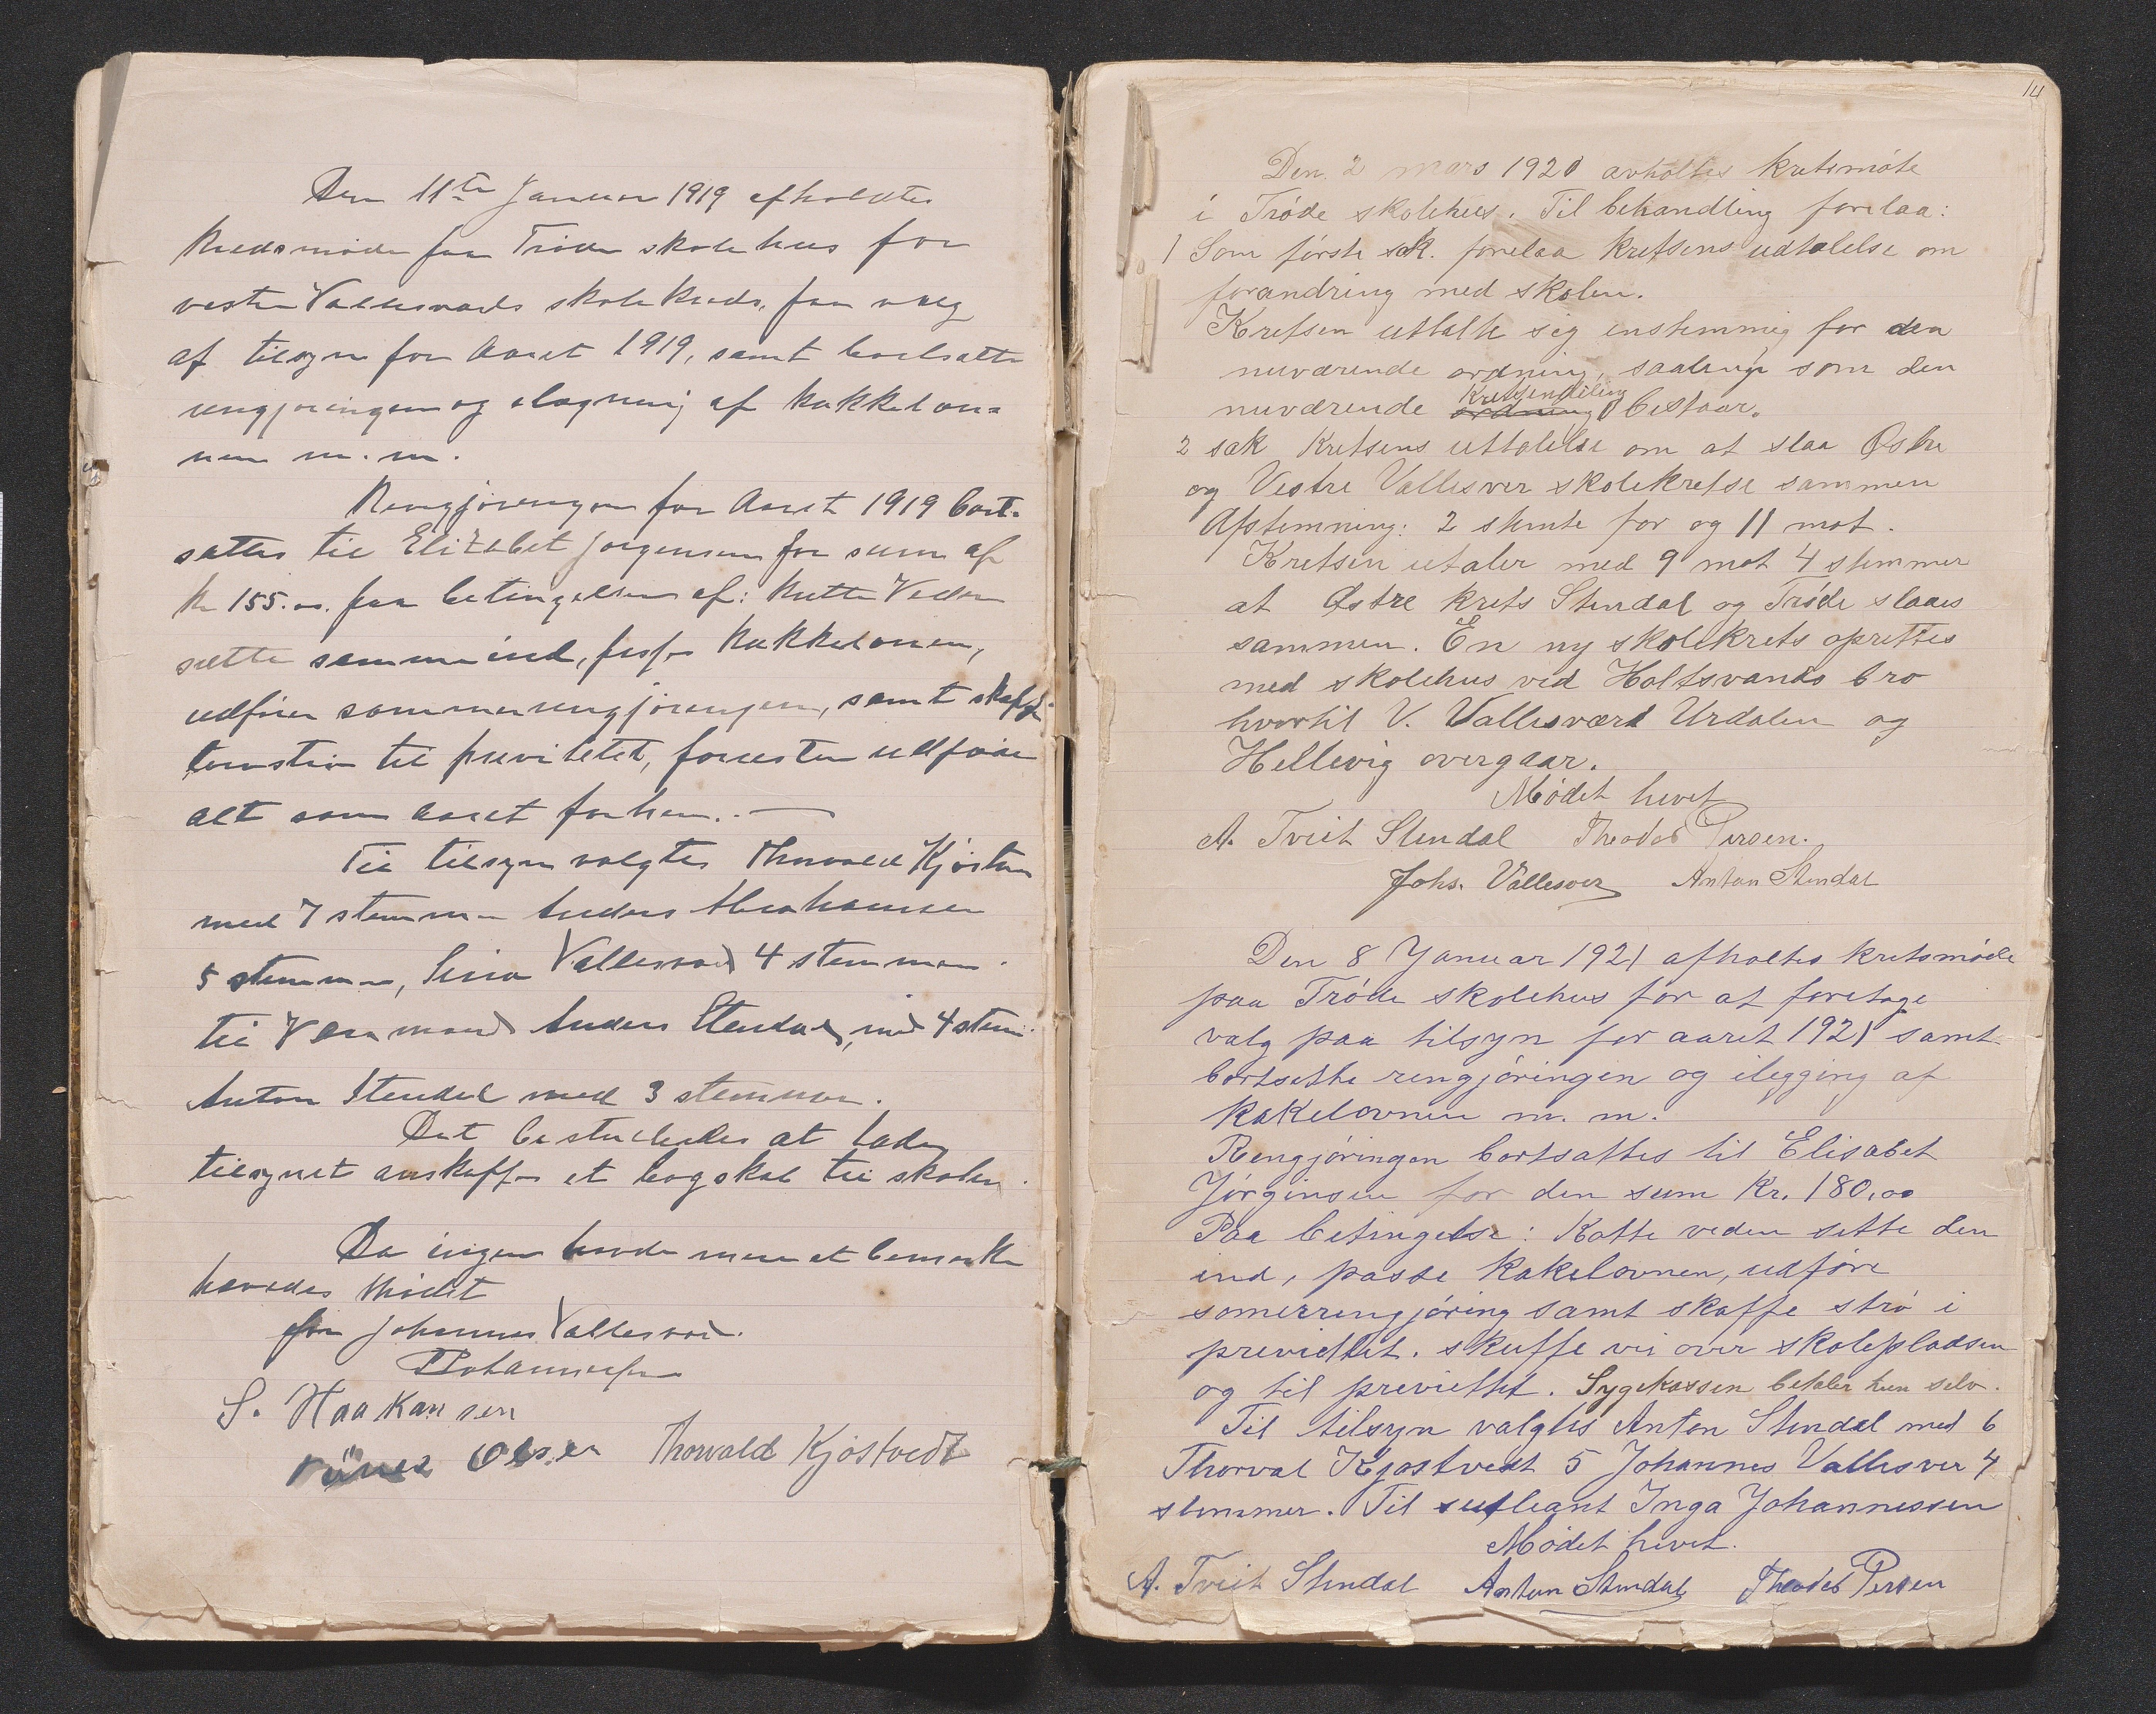 Den 11te Januar 1919 afholdtes
Kredsmøde paa Trøde skolehus for
vestre Vallesværds skolekreds, paa valg
af tilsyn for Aaret 1919, samt bortsatte
rengjøringen og ilægning af kakkelov-
nen m. m.
Rengjøringen for Aaret 1919 bort-
sattes til Elizabet Jørgensen for sum af
kr 155.00. paa betingelsen af: kutte Veden
sætte samme ind, passe kakkelovnen,
udføre sommerrengjøringen, samt skaffe
torvstrø til previtetet, foresten udføre
alt som aaret forhen.. —
Til tilsyn valgtes Thorvald Kjøstv
med 7 stemmer Anders Abrahamsen
5 stemmer, Sina Vallesværd 4 stemmer.
til Varamænd Anders Stendal, med 4 stem.
Anton Stendal med 3 stemmer.
Det bestulledes at lade
tilsynet anskaffe et bogskab til skolen.
Da ingen havde mere at bemerke
hævedes Mødet
for Johannes Vallesværd.
S. Haakansen
Olsen Thorvald Kjøstvedt
14
Den 2 mars 1920 avholtes kretsmøte
i Trøde skolehus. Til behandling forelaa:
1 Som første sak. forelaa kretsens udtalelse om
forandring med skolen.
Kretsen uttalte sig enstemmig for den
nuværende ordning, saalenge som den
Kretsendeling
nuværende ordning bestaar.
2 sak Kretsens uttalelse om at slaa Østre
og Vestre Vallesver skolekretse sammen
Afstemning: 2 stemte for og 11 mot.
Kretsen utaler med 9 mot 4 stemmer
at Østre krets Stendal og Trøde slaaes
sammen. En ny skolekrets oprettes
med skolehus ved Holtsvands bro
hvortil V. Vallesværd Urdalen og
Hellevig overgaar.
Mødet hevet
A. Tveit Stendal Theodor Persen.
Johs. Vallesver Anton Stendal
Den 8 Januar 1921 afholtes kretsmøde
paa Trøde skolehus for at foretage
valg paa tilsyn for aaret 1921 samt
bortsette rengjøringen og ilegging af
kakelovnen m. m.
Rengjøringen bortsattes til Elisabet
Jørginsen for den sum Kr. 180,00
Paa betingelse: Kotte veden sette den
ind, passe kakelovnen, udføre
somerrengjøring samt skaffe strø i
previettet. skuffe vei over skolepladsen
og til previettet. Sygekassen betaler hun selv.
Til tilsyn valgtes Anton Stendal med 6
Thorval Kjøstvedt 5 Johannes Vallesver 4
stemmer. Til supleant Inga Johannessen
Mødet hevet.
A. Tveit Stendal Anton Stendal Theodor Persen